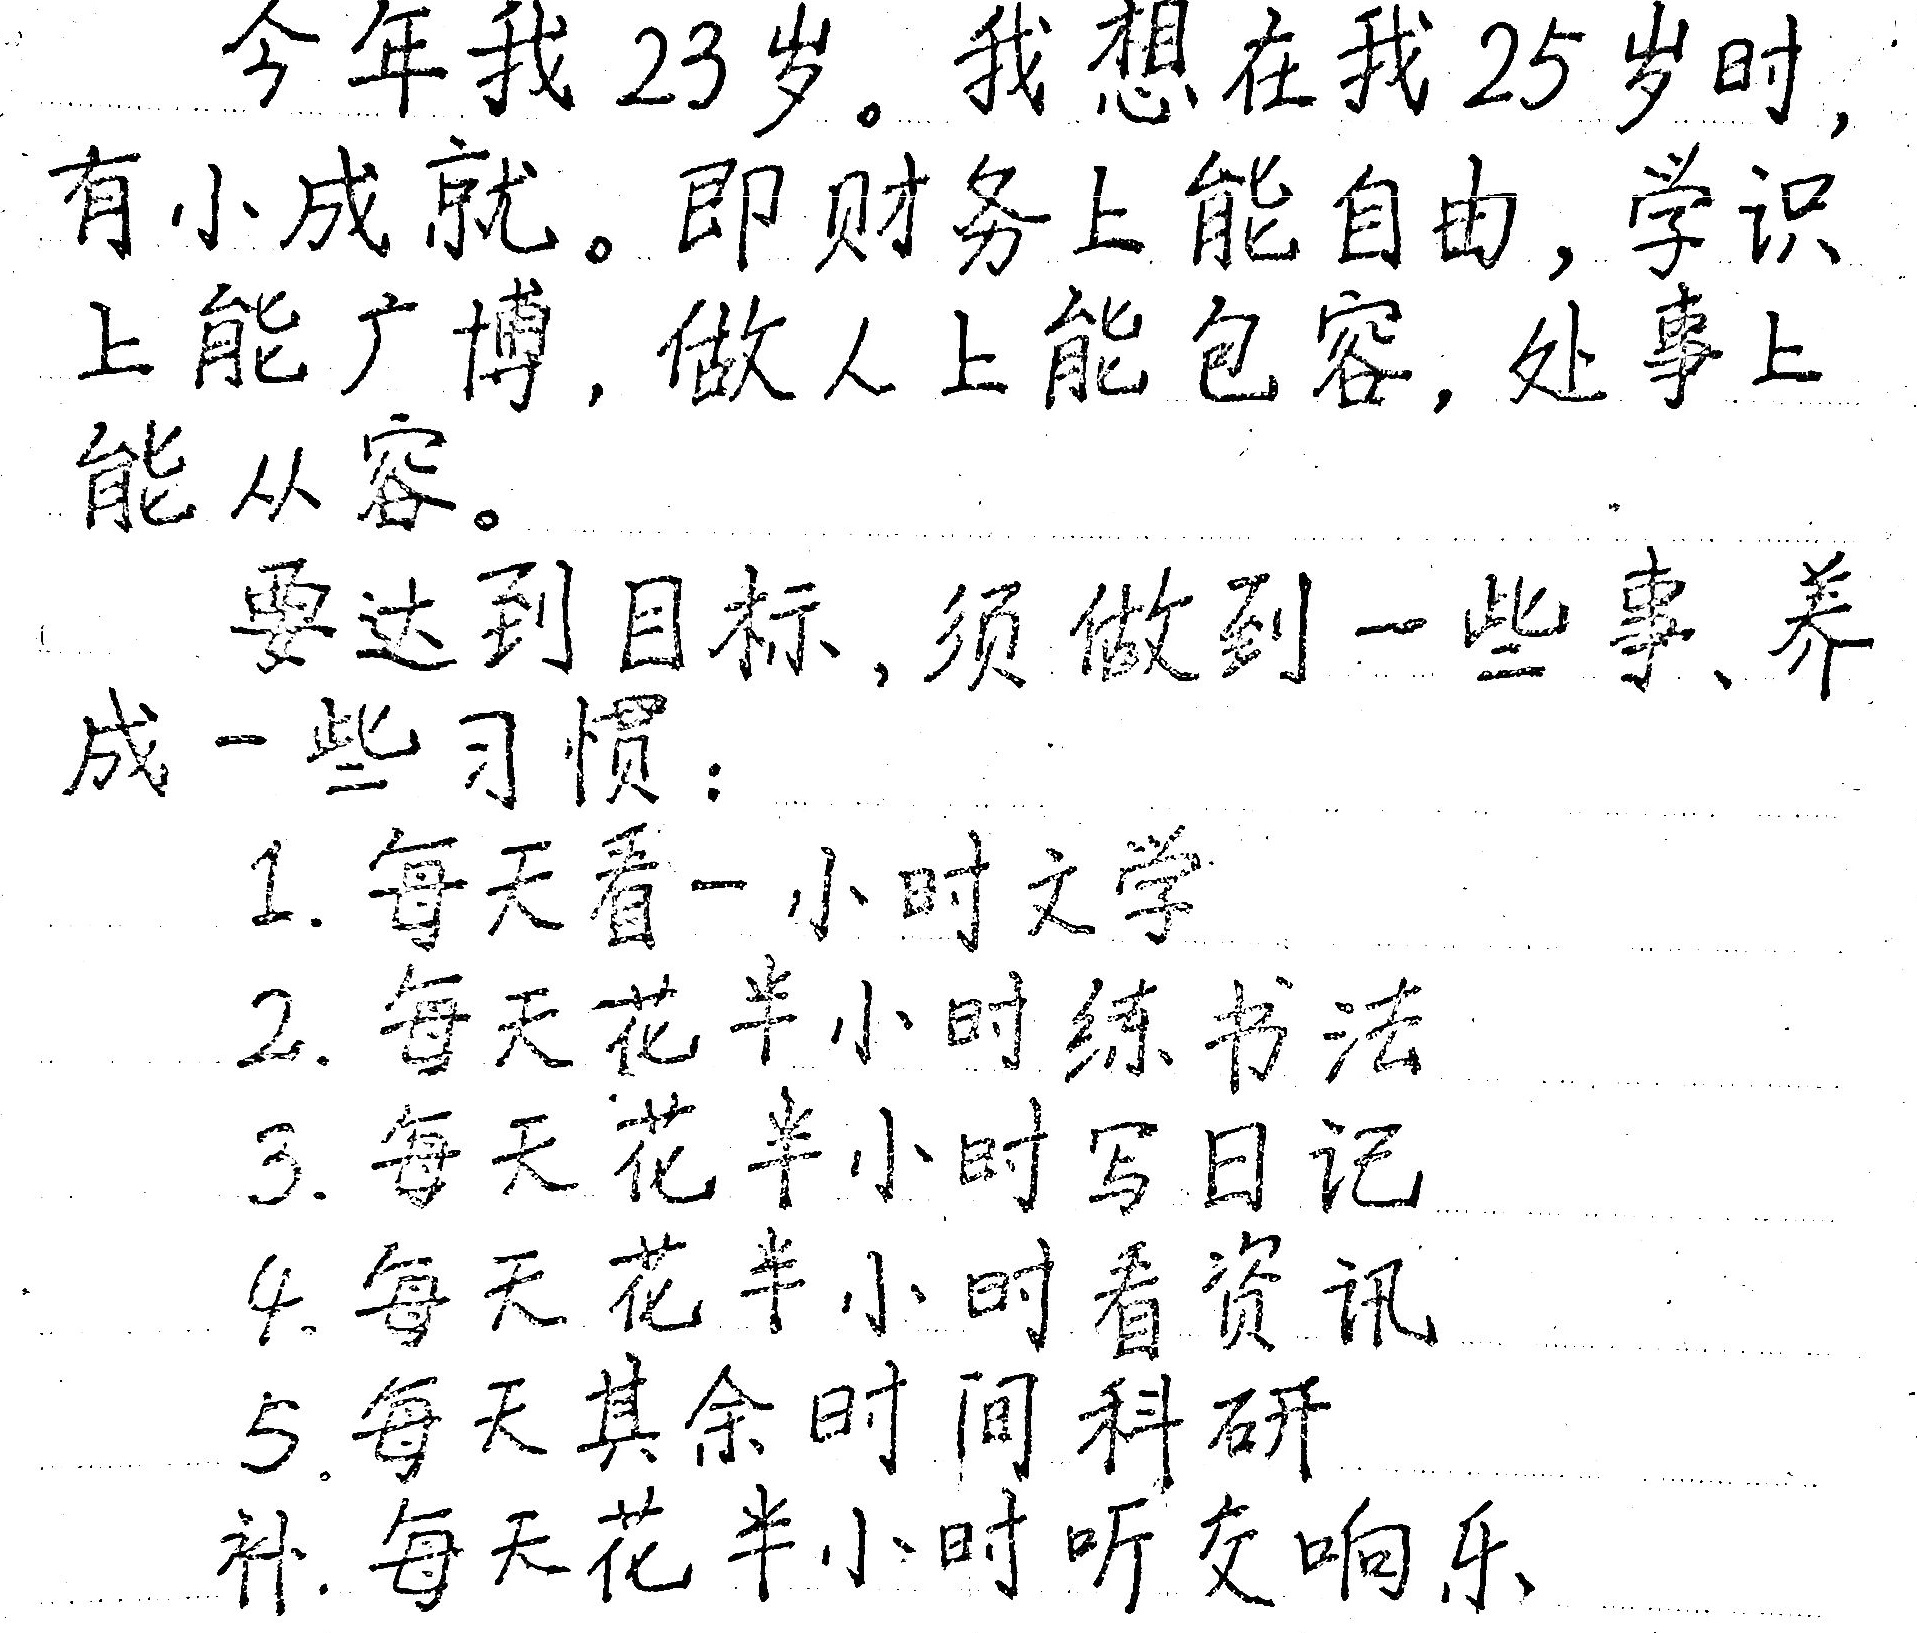 今年我23岁。我想在我25岁时,
有小成就。即财务上能自由,学识
上能广博,做人上能包容,处事上
能从容。
要达到目标,须做到一些事、养
成一些习惯:
1. 每天看一小时文学
2. 每天花半小时练书法
3. 每天花半小时写日记
4. 每天花半小时看资讯
5. 每天其余时间科研
补. 每天花半小时听交响乐